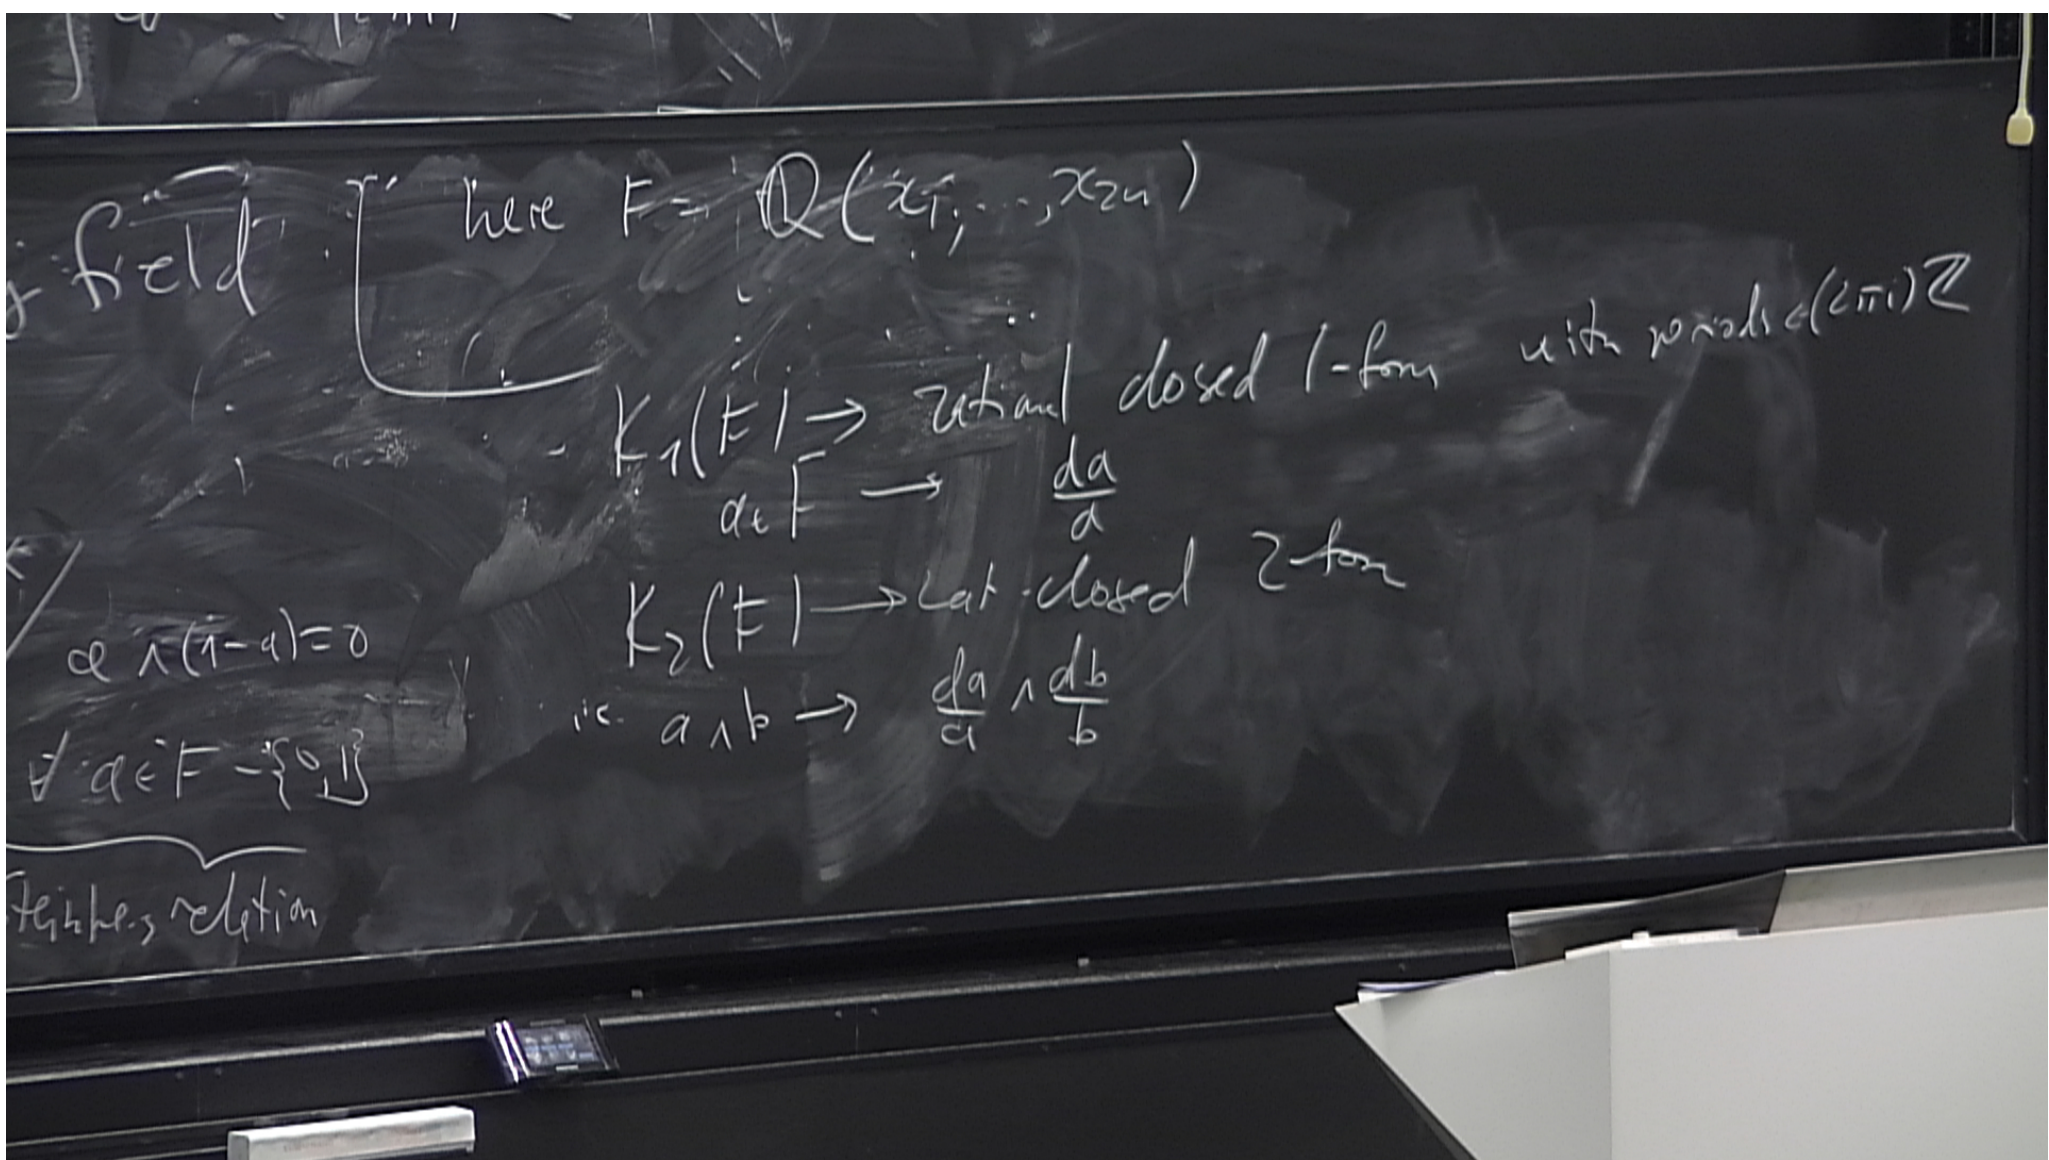 field
here F = ℚ(x₁, ..., x₂ₙ)
K₁(F) → rational closed 1-form with periods ∈ (2πi)ℤ
a ∈ F → da/a
K₂(F) → rat. closed 2-form
i.e. a ∧ b → da/a ∧ db/b
a ∧ (1-a) = 0
∀ a ∈ F - {0,1}
Steinberg relation